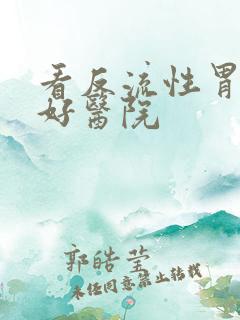 看反流性胃
好醫院
郭皓莹
未任同意禁止转载